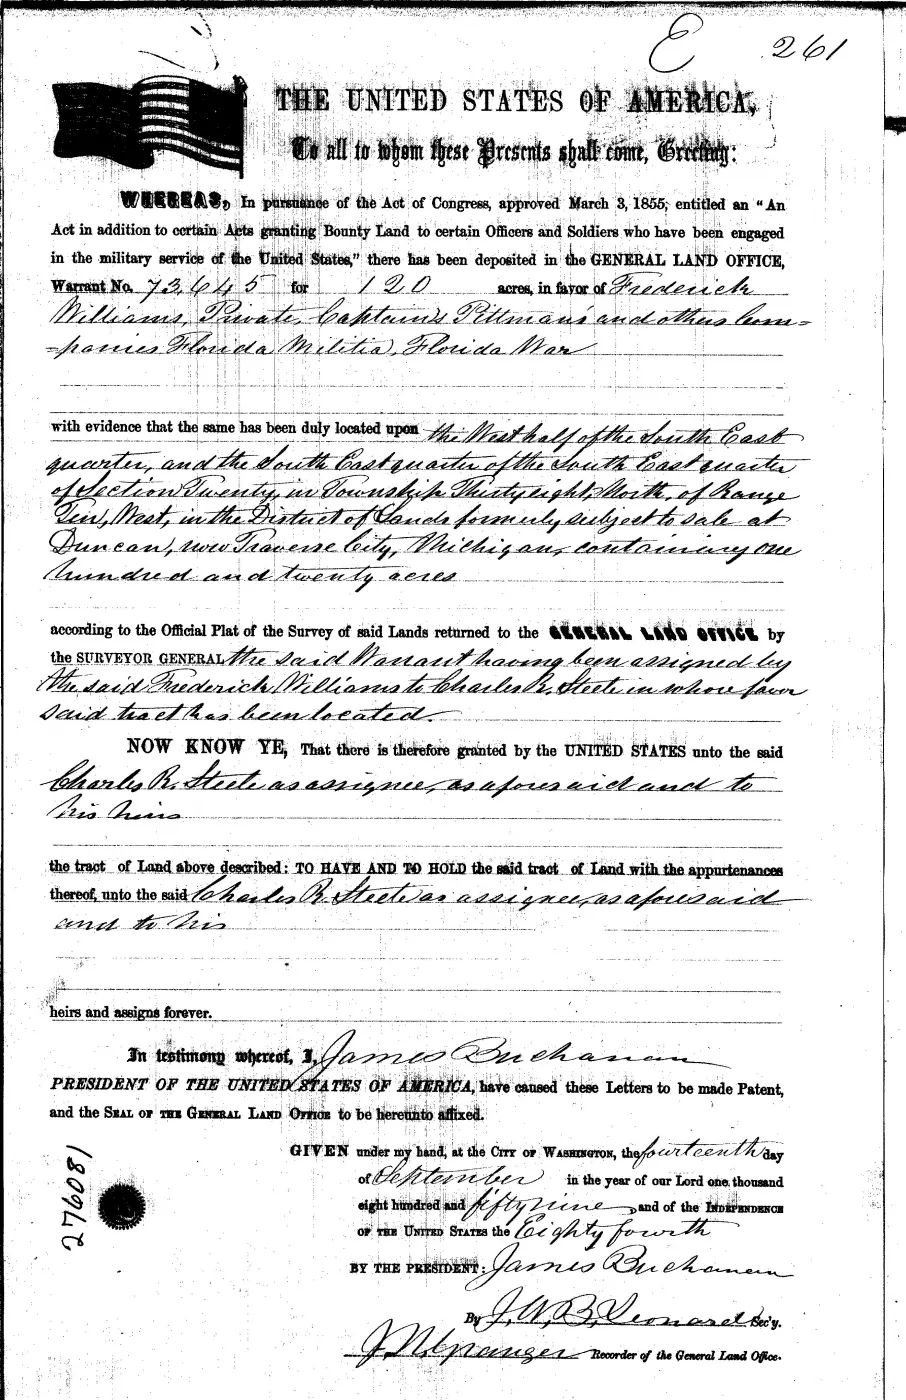 E 261
THE UNITED STATES OF AMERICA,
To all to whom these Presents shall come, Greeting:
WHEREAS, In pursuance of the Act of Congress, approved March 3, 1855, entitled an "An
Act in addition to certain Acts granting Bounty Land to certain Officers and Soldiers who have been engaged
in the military service of the United States," there has been deposited in the GENERAL LAND OFFICE,
Warrant No. 73,645 for 120 acres, in favor of Frederick
Williams, Private, Captains Pittman's and others Com=
=panies Florida Militia, Florida War
with evidence that the same has been duly located upon the West half of the South East
quarter, and the South East quarter of the South East quarter
of Section Twenty, in Township Thirty eight, North, of Range
Ten, West, in the District of Lands formerly subject to sale at
Duncan, now Traverse City, Michigan, containing one
hundred and twenty acres
according to the Official Plat of the Survey of said Lands returned to the GENERAL LAND OFFICE by
the SURVEYOR GENERAL the said Warrant having been assigned by
the said Frederick Williams to Charles R. Steele in whose favor
said tract has been located.
NOW KNOW YE, That there is therefore granted by the UNITED STATES unto the said
Charles R. Steele as assignee, as aforesaid and to
his heirs
the tract of Land above described: TO HAVE AND TO HOLD the said tract of Land with the appurtenances
thereof, unto the said Charles R. Steele as assignee, as aforesaid
and to his
heirs and assigns forever.
In testimony whereof, I, James Buchanan
PRESIDENT OF THE UNITED STATES OF AMERICA, have caused these Letters to be made Patent,
and the SEAL OF THE GENERAL LAND OFFICE to be hereunto affixed.
GIVEN under my hand, at the CITY OF WASHINGTON, the fourteenth day
of September in the year of our Lord one thousand
eight hundred and fifty nine, and of the INDEPENDENCE
OF THE UNITED STATES the Eighty fourth
BY THE PRESIDENT: James Buchanan
By J. W. B. Leonard Sec'y.
J. N. Granger Recorder of the General Land Office.
276081